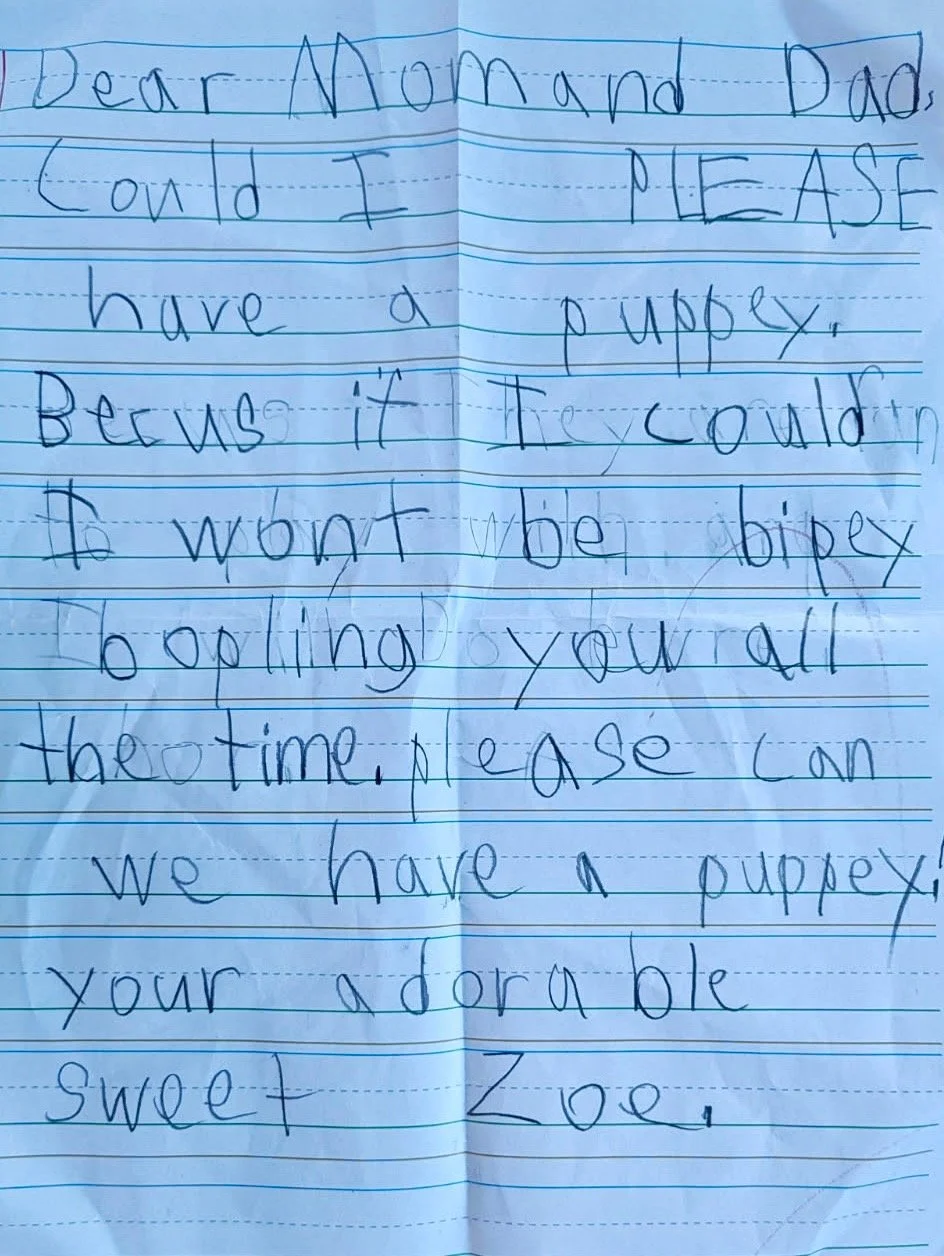 Dear Mom and Dad,
Could I PLEASE
have a puppey.
Becus if I could
I wont be bipey
bopling you all
the time. please can
we have a puppey!
your adorable
sweet Zoe.